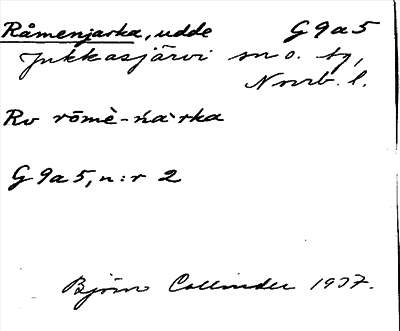 Råmenjarka, udde G9a5
Jukkasjärvi sn o. tg,
Norrb. l.
Rv rōmè-ńàrka
G9a5, n:r 2
Björn Collinder 1937.